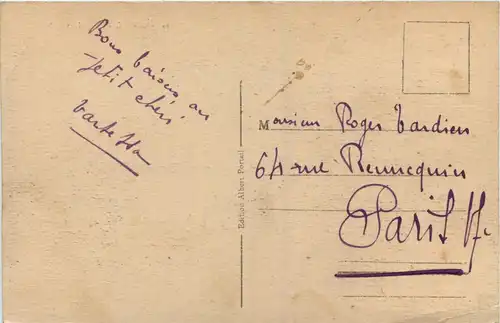 Bons baisers au
petit chéri
Edition Albert Portail
Monsieur Roger Tardieu
64 rue Rennequin
Paris 17e